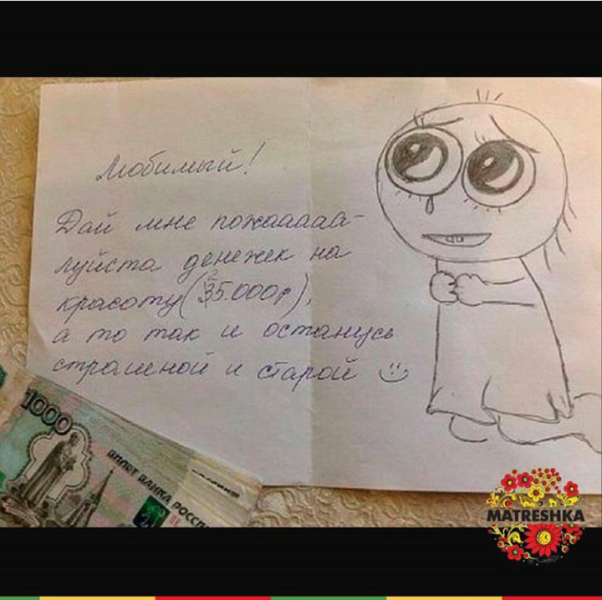 Любимый!
Дай мне пожааааа-
луйста денежек на
красоту (35.000р),
а то так и останусь
страшной и старой
1000
БИЛЕТ БАНКА РОСС
MATRESHKA